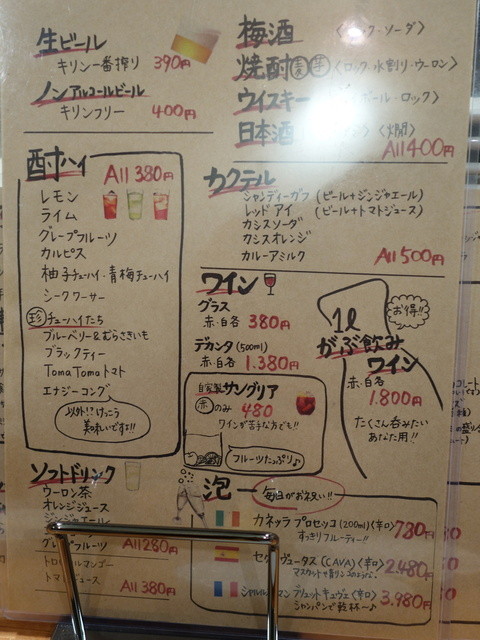 生ビール
キリン一番搾り 390円
ノンアルコールビール
キリンフリー 400円
梅酒 ソーダ〉
焼酎 麦 芋 〈ロック・水割り・ウーロン〉
ウイスキー ボール・ロック〉
日本酒 〈燗〉
All400円
酎ハイ All 380円
レモン
ライム
グレープフルーツ
カルピス
柚子チューハイ・青梅チューハイ
シークワーサー
珍チューハイたち
ブルーベリー&むらさきいも
ブラックティー
Toma Tomaトマト
エナジーコング
以外!?けっこう
美味いです!!
カクテル
シャンディーガフ (ビール+ジンジャエール)
レッド アイ (ビール+トマトジュース)
カシスソーダ
カシスオレンジ
カルーアミルク
All500円
ワイン
グラス
赤・白各 380円
デカンタ (500ml)
赤・白各 1.380円
自家製サングリア
赤のみ 480
ワインが苦手な方も!!
フルーツたっぷり♪
お得!!
1ℓ
がぶ飲み
ワイン
赤・白各
1.800円
たくさん呑みたい
あなた用!!
ソフトドリンク
ウーロン茶
オレンジジュース
ジンジャエール
グレープフルーツ
All280円
トロピカルマンゴー
トマトジュース
All 380円
泡 毎日がお祝い!!
カネッラ プロセッコ (200ml)〈辛口〉 780円
すっきりフルーティー!!
ヴュータス (CAVA)〈辛口〉 2.480円
マスカットや青リンゴのような、
キュヴェ〈辛口〉 3.980円
シャンパンで乾杯〜♪